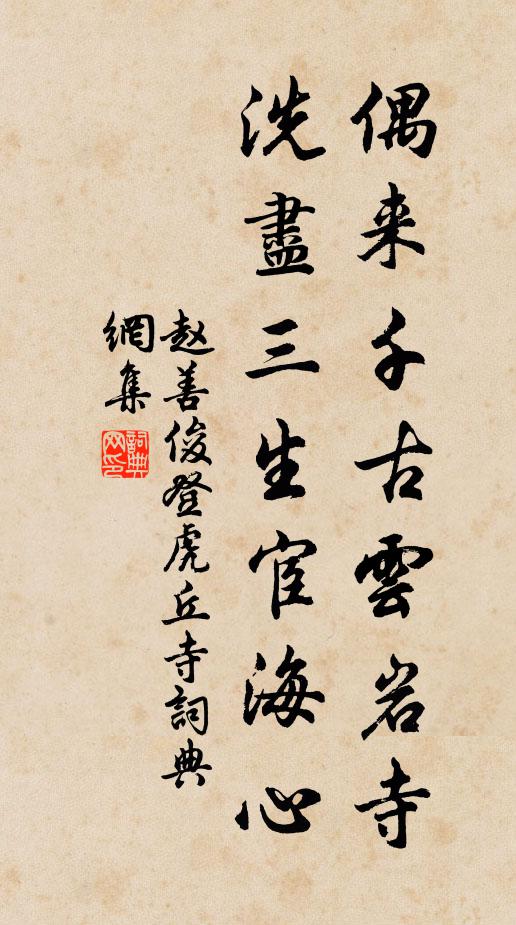 偶来千古雲岩寺
洗盡三生宦海心
赵善俊登虎丘寺詞典
網集
詞典
网印